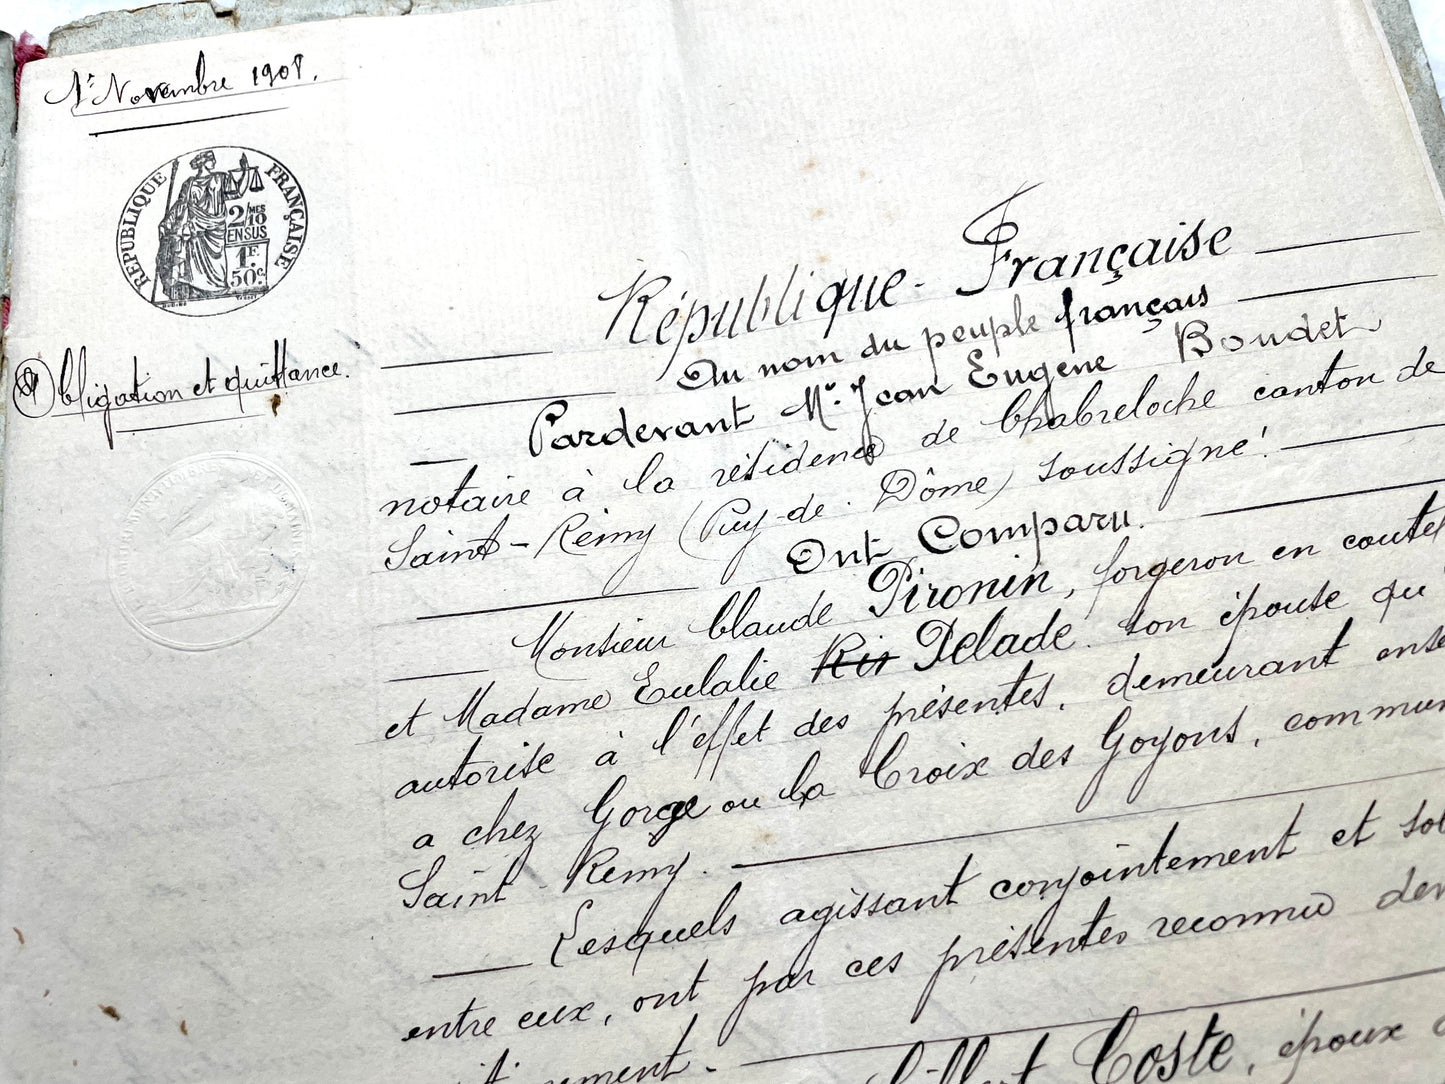 1er Novembre 1908.
REPUBLIQUE FRANÇAISE
2/10 MES
EN SUS
1F.
50c.
Obligation et quittance.
République-Française
Au nom du peuple français
Pardevant Me. Jean Eugène Boudet
notaire à la résidence de Chabreloche canton de
Saint-Rémy (Puy-de-Dôme) soussigné!
Ont Comparu.
Monsieur Claude Pironin, forgeron en coutel
et Madame Eulalie Delade son épouse qu'
autorise à l'effet des présentes, demeurant ense
a chez Gorge ou La Croix des Goyons, commun
Saint-Remy.
Lesquels agissant conjointement et sol
entre eux, ont par ces présentes reconnu dev
ment.
Coste, époux